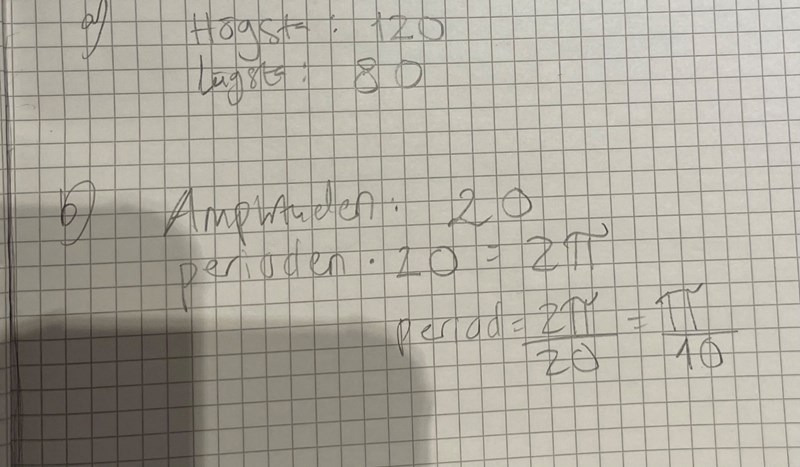 a) Högst: 120
Lägst: 80
b) Amplituden: 20
perioden · 20 = 2π
period = 2π/20 = π/10